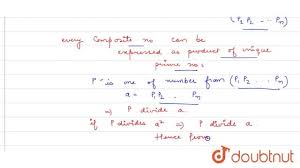 (P₁ P₂ ... Pₙ)
every Composite no can be
expressed as product of unique
prime no:
P is one of number from (P₁ P₂ ... Pₙ)
a = P₁ P₂ .. Pₙ
⇒ P divide a
if P divides a² ⇒ P divide a
Hence from
doubtnut